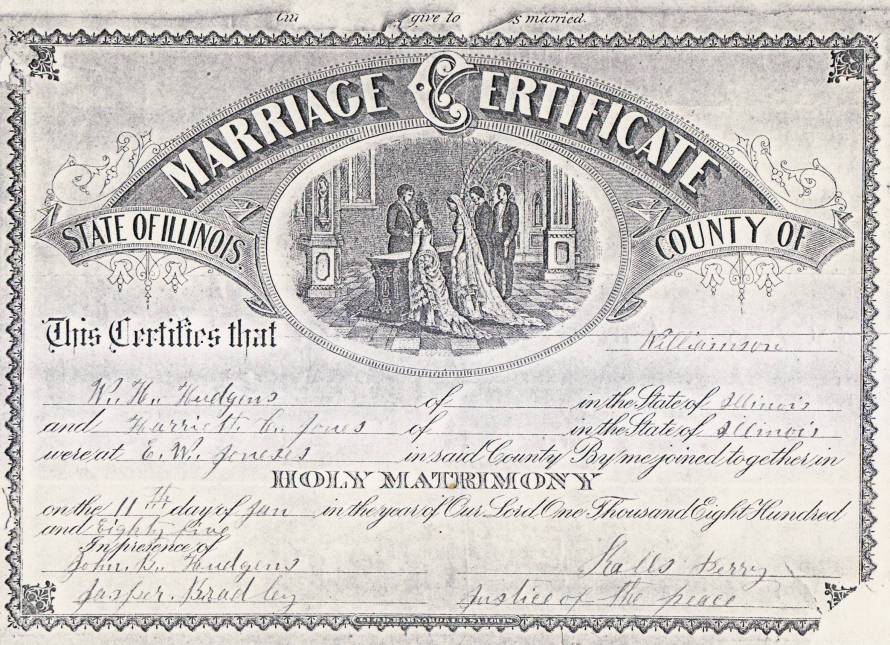 give to
s married.
MARRIAGE CERTIFICATE
STATE OF ILLINOIS.
COUNTY OF
This Certifies that
Williamson
W. H. Hudgens of in the State of Illinois
and Harriett C. Jones of in the State of Illinois
were at E. W. Joneses in said County By me joined together in
HOLY MATRIMONY
on the 11th day of Jan in the year of Our Lord One Thousand Eight Hundred
and Eighty five
In presence of
John. Hudgens
Perry
Jasper. Bradley
Justice of the peace
ST. LOUIS